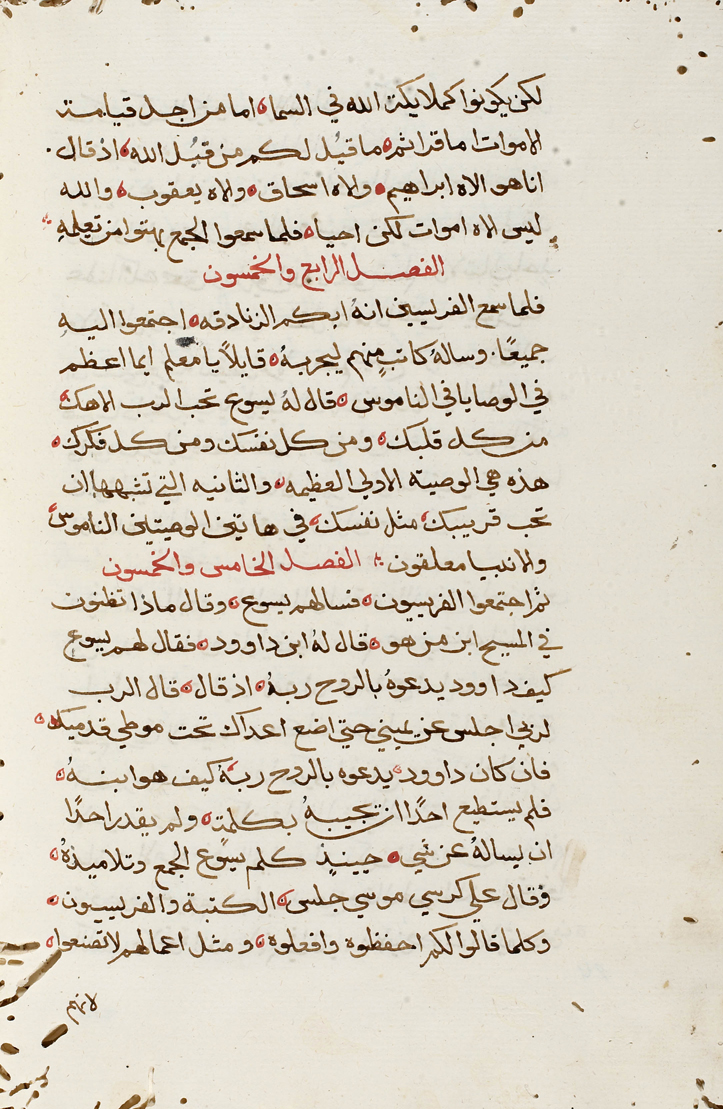 لكن يكونوا كملايكة الله في السما اما من اجل قيامة
الاموات اما قراتم ما قيل لكم من قبل الله اذ قال
انا هو الاه ابراهيم والاه اسحاق والاه يعقوب والله
ليس الاه اموات لكن احيا فلما سمعوا الجمع بهتوا من تعليمه
الفصل الرابع والخمسون
فلما سمع الفريسيين انه ابكم الزنادقه اجتمعوا اليه
جميعًا وساله كاتب منهم ليجربه قايلاً يا معلم ايما اعظم
في الوصايا في الناموس قال له يسوع تحب الرب الاهك
من كل قلبك ومن كل نفسك ومن كل فكرك
هذه هي الوصية الاولي العظيمه والثانيه التي تشبهها ان
تحب قريبك مثل نفسك في هاتين الوصيتين الناموس
والانبيا معلقون الفصل الخامس والخمسون
ثم اجتمعوا الفريسيون فسالهم يسوع وقال ماذا تظنون
في المسيح ابن من هو قال له ابن داوود فقال لهم يسوع
كيف داوود يدعوه بالروح ربه اذ قال قال الرب
لربي اجلس عن يميني حتي اضع اعداك تحت موطي قدميك
فان كان داوود يدعوه بالروح ربه كيف هو ابنه
فلم يستطيع احدًا ان يجيبه بكلمة ولم يقدر احدًا
ان يساله عن شي حينيذٍ كلم يسوع الجمع وتلاميذه
وقال علي كرسي موسي جلس الكتبة والفريسيون
وكلما قالوا لكم احفظوه وافعلوه ومثل اعمالهم لا تصنعوا
لانهم